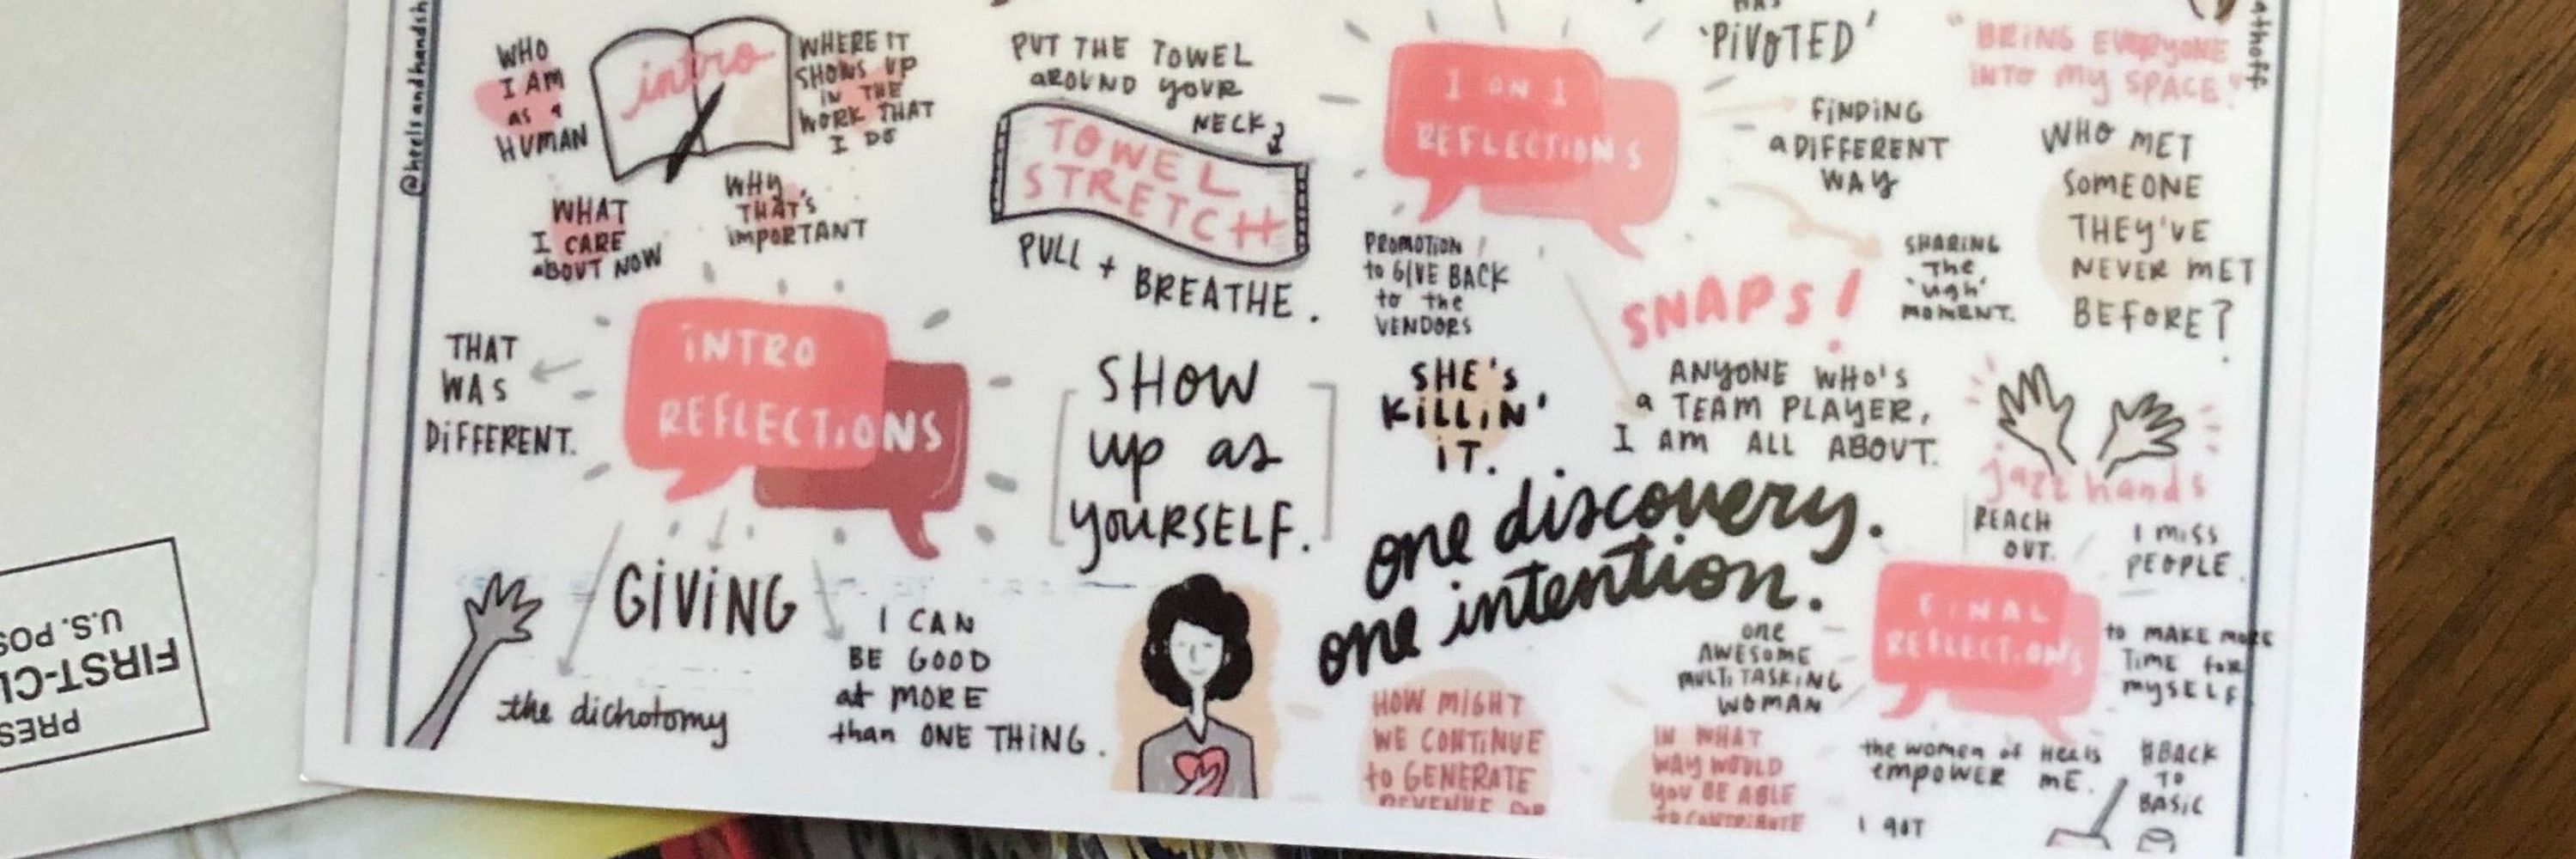 @heelsandhandsh
WHO
I AM
as a
HUMAN
intro
WHERE IT
SHOWS UP
IN THE
WORK THAT
I DO
WHAT
I CARE
aBOUT NOW
WHY
THAT'S
IMPORTANT
PUT THE TOWEL
aROUND YOUR
NECK
TOWEL
STRETCH
PULL + BREATHE.
1 ON 1
REFLECTIONS
'PIVOTED'
FINDING
a DIFFERENT
WAY
"BRING EVERYONE
INTO MY SPACE."
WHO MET
SOMEONE
THEY'VE
NEVER MET
BEFORE?
PROMOTION
to GIVE BACK
to the
VENDORS
SNAPS!
SHARING
The
'ugh'
MOMENT.
THAT
WAS
DIFFERENT.
INTRO
REFLECTIONS
SHOW
up as
yOURSELF.
SHE'S
KILLIN'
IT.
ANYONE WHO'S
a TEAM PLAYER,
I AM ALL ABOUT.
jazz hands
one discovery.
one intention.
REACH
OUT.
I MISS
PEOPLE.
GIVING
the dichotomy
I CAN
BE GOOD
at MORE
than ONE THING.
one
AWESOME
MULTITASKING
WOMAN
FINAL
REFLECTIONS
to MAKE MORE
TIME for
mySELF
HOW MIGHT
WE CONTINUE
to GENERATE
REVENUE
IN WHAT
WAY WOULD
YOU BE ABLE
TO CONTRIBUTE
the women of HEELS
EMPOWER ME.
#BACK
TO
BASIC
I GOT
U.S. POS
FIRST-CL
PRES